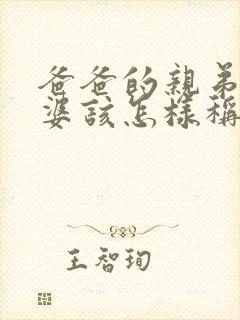 爸爸的親弟
婆該怎樣稱
王智珣